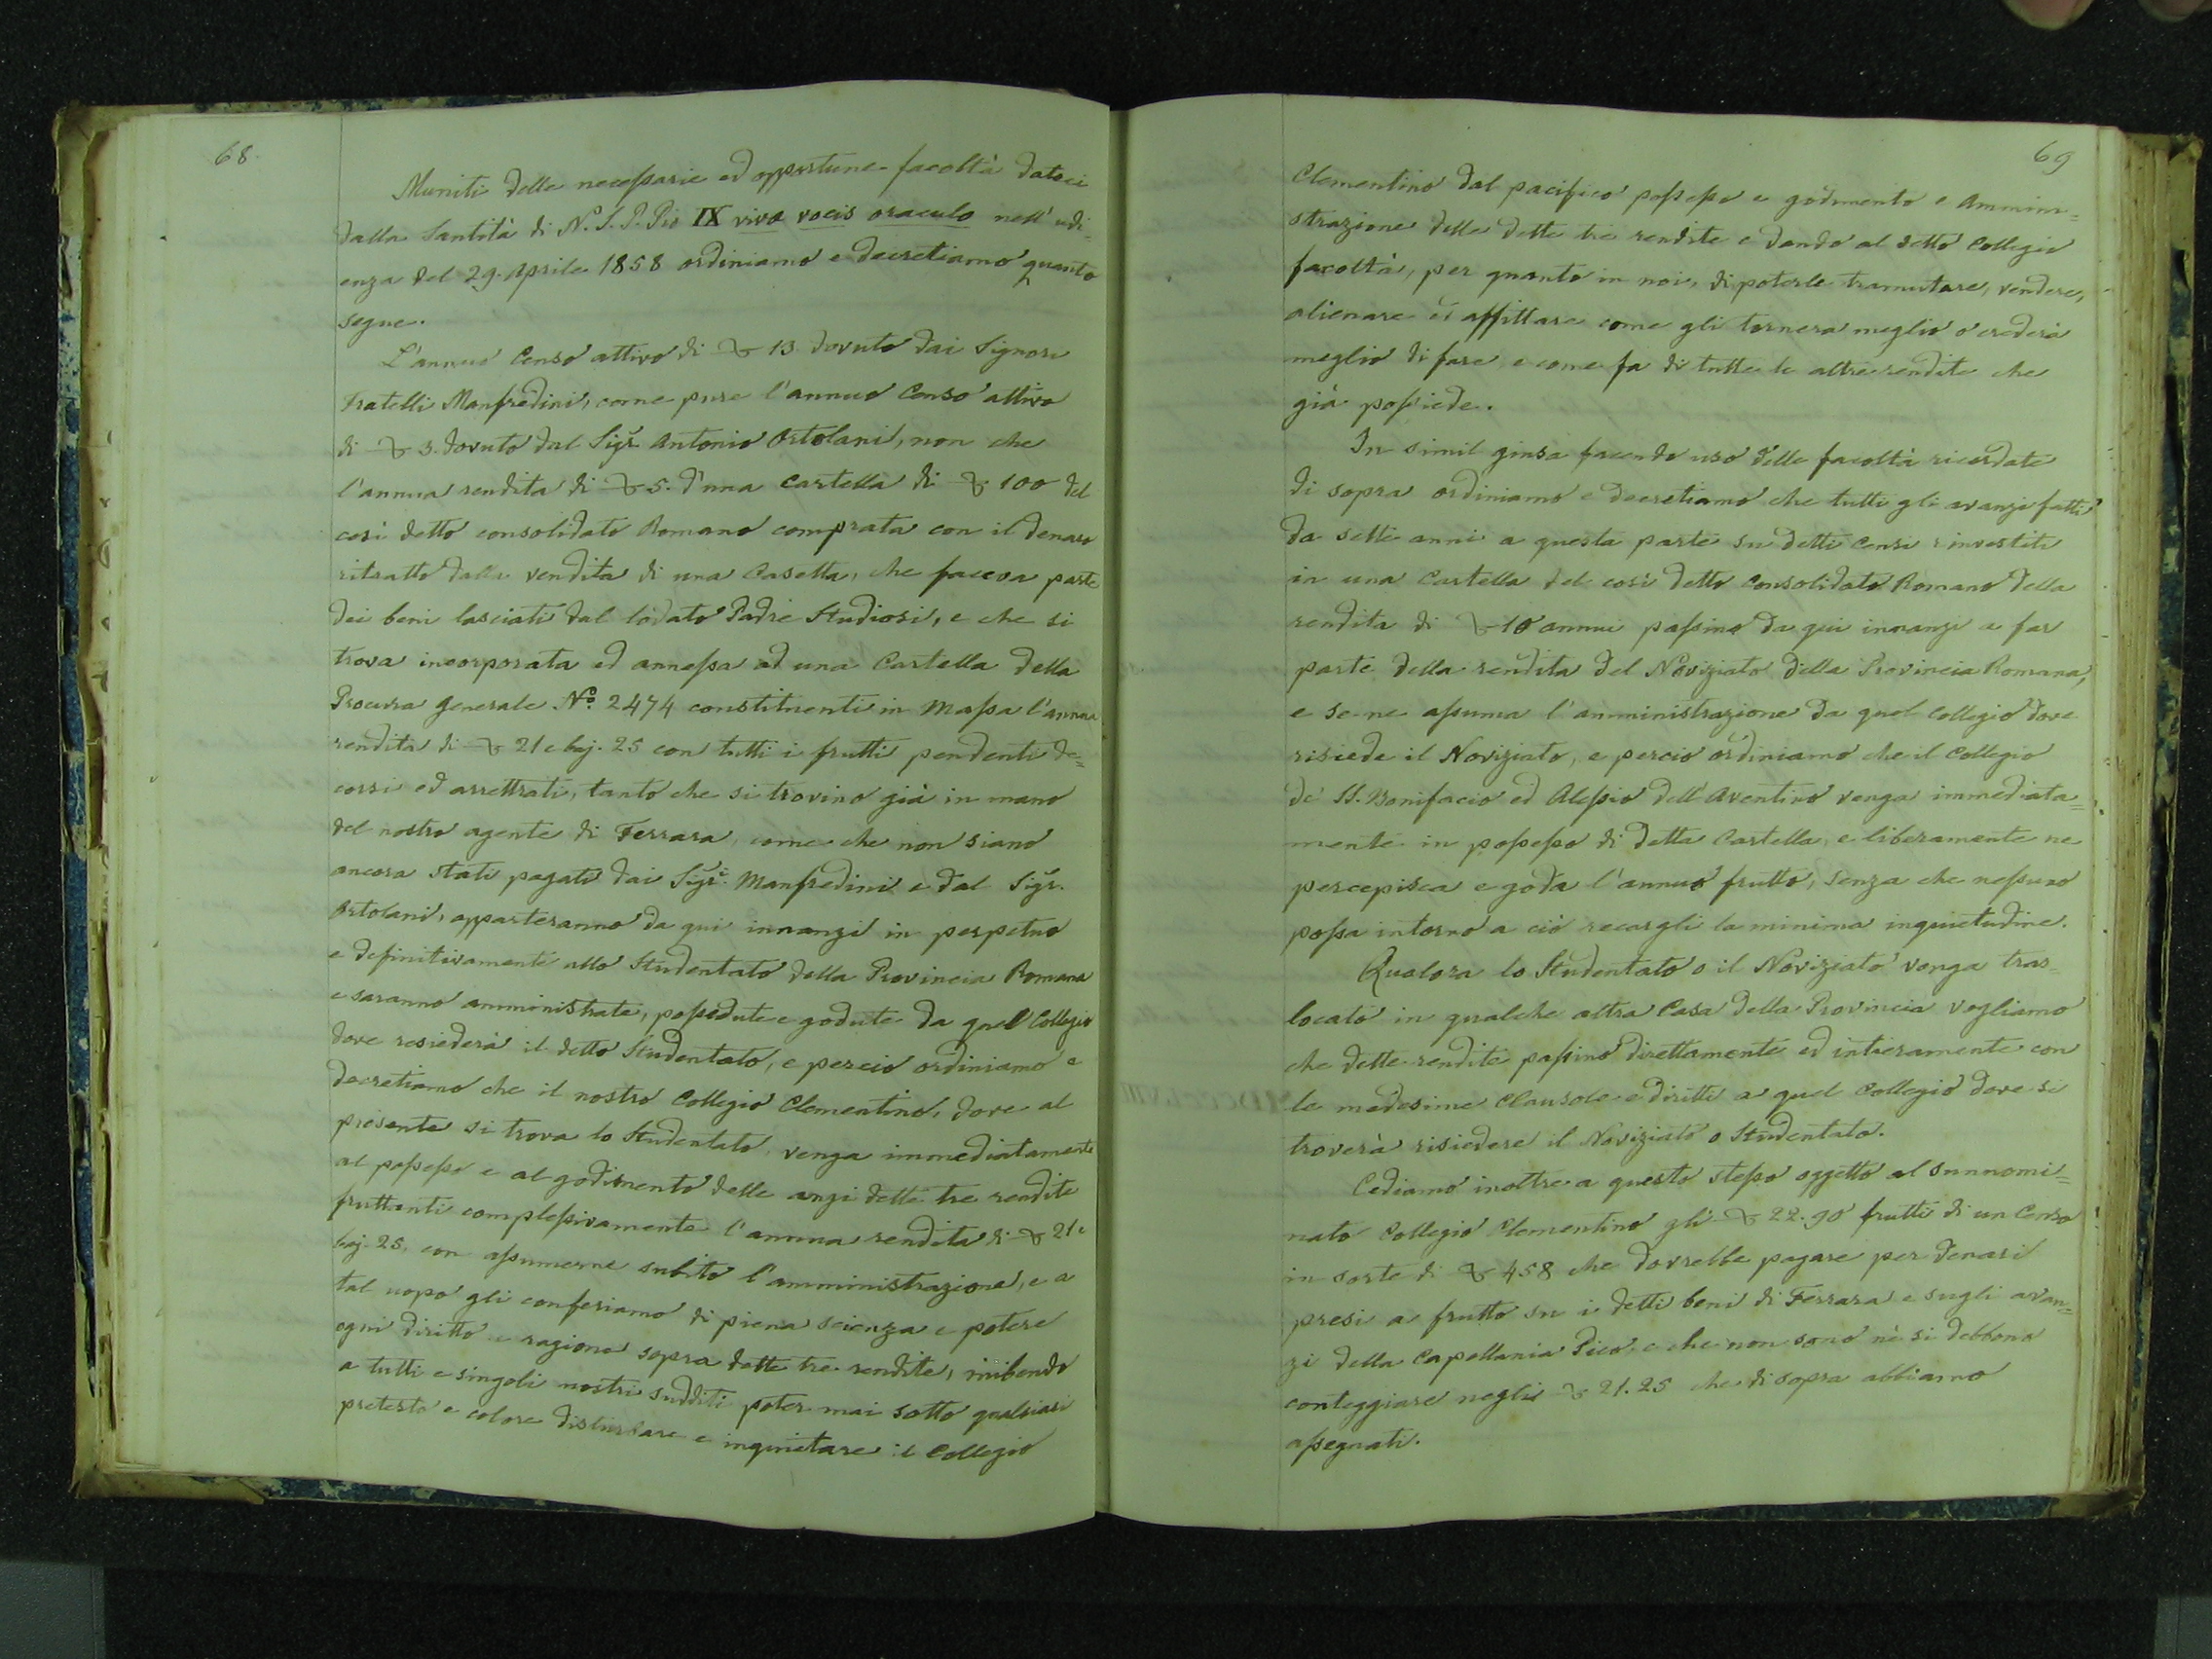 68.
Muniti delle necessarie ed opportune facoltà dateci
dalla Santità di N. S. P. Pio IX vivæ vocis oraculo nell'udi-
enza del 29. Aprile 1858 ordiniamo e decretiamo quanto
segue.
L'annuo Censo attivo di ꝟ 13. dovuto dai Signori
Fratelli Manfredini, come pure l'annuo Censo attivo
di ꝟ 3. dovuto dal Sigr. Antonio Ortolani, non che
l'annua rendita di ꝟ 5. d'una Cartella di ꝟ 100 del
così detto consolidato Romano comprata con il denaro
ritratto dalla vendita di una Casetta, che faceva parte
dei beni lasciati dal lodato Padre Studiosi, e che si
trova incorporata ed annessa ad una Cartella della
Procura Generale No. 2474 constituenti in Massa l'annua
rendita di ꝟ 21 e baj. 25 con tutti i frutti pendenti de=
corsi ed arrettrati, tanto che si trovino già in mano
del nostro agente di Ferrara, come che non siano
ancora stati pagati dai Sigri. Manfredini e dal Sigr.
Ortolani, apparteranno da qui innanzi in perpetuo
e definitivamente allo Studentato della Provincia Romana
e saranno amministrate, possedute e godute da quel Collegio
dove resiederà il detto Studentato, e perciò ordiniamo e
decretiamo che il nostro Collegio Clementino, dove al
presente si trova lo Studentato, venga immediatamente
al possesso e al godimento delle anzi dette tre rendite
fruttanti complessivamente l'annua rendita di ꝟ 21 e
baj. 25. con assumerne subito l'amministrazione, e a
tal uopo gli conferiamo di piena scienza e potere
ogni diritto e ragione sopra dette tre rendite, inibendo
a tutti e singoli nostri sudditi poter mai sotto qualsiasi
pretesto e colore disturbare e inquietare il Collegio
69
Clementino dal pacifico possesso e godimento e Ammini=
strazione delle dette tre rendite e dando al detto Collegio
facoltà, per quanto in noi, di poterle tramutare, vendere,
alienare ed affittare come gli tornera meglio o crederà
meglio di fare, e come fa di tutte le altre rendite che
già possiede.
In simil guisa facendo uso delle facoltà ricordate
di sopra ordiniamo e decretiamo che tutti gli avanzi fatti
da sette anni a questa parte su detti Censi rinvestiti
in una Cartella del così detto Consolidato Romano della
rendita di ꝟ 10 annui passino da qui innanzi a far
parte della rendita del Noviziato della Provincia Romana,
e se ne assuma l'amministrazione da quel Collegio dove
risiede il Noviziato, e perciò ordiniamo che il Collegio
de' SS. Bonifacio ed Alessio dell'Aventino venga immediata=
mente in possesso di detta Cartella, e liberamente ne
percepisca e goda l'annuo frutto, senza che nessuno
possa intorno a ciò recargli la minima inquietudine.
Qualora lo Studentato o il Noviziato venga tras=
locato in qualche altra Casa della Provincia vogliamo
che dette rendite passino direttamente ed intieramente con
le medesime Clausole e diritti a quel Collegio dove si
troverà risiedere il Noviziato o Studentato.
Cediamo inoltre a questo stesso oggetto al sunnomi=
nato Collegio Clementino gli ꝟ 22.90 frutti di un Censo
in sorte di ꝟ 458 che dovrebbe pagare per denari
presi a frutto su i detti beni di Ferrara e sugli avan=
zi della Capellania Pico, e che non sono nè si debbono
conteggiare negli ꝟ 21.25 che di sopra abbiamo
assegnati.